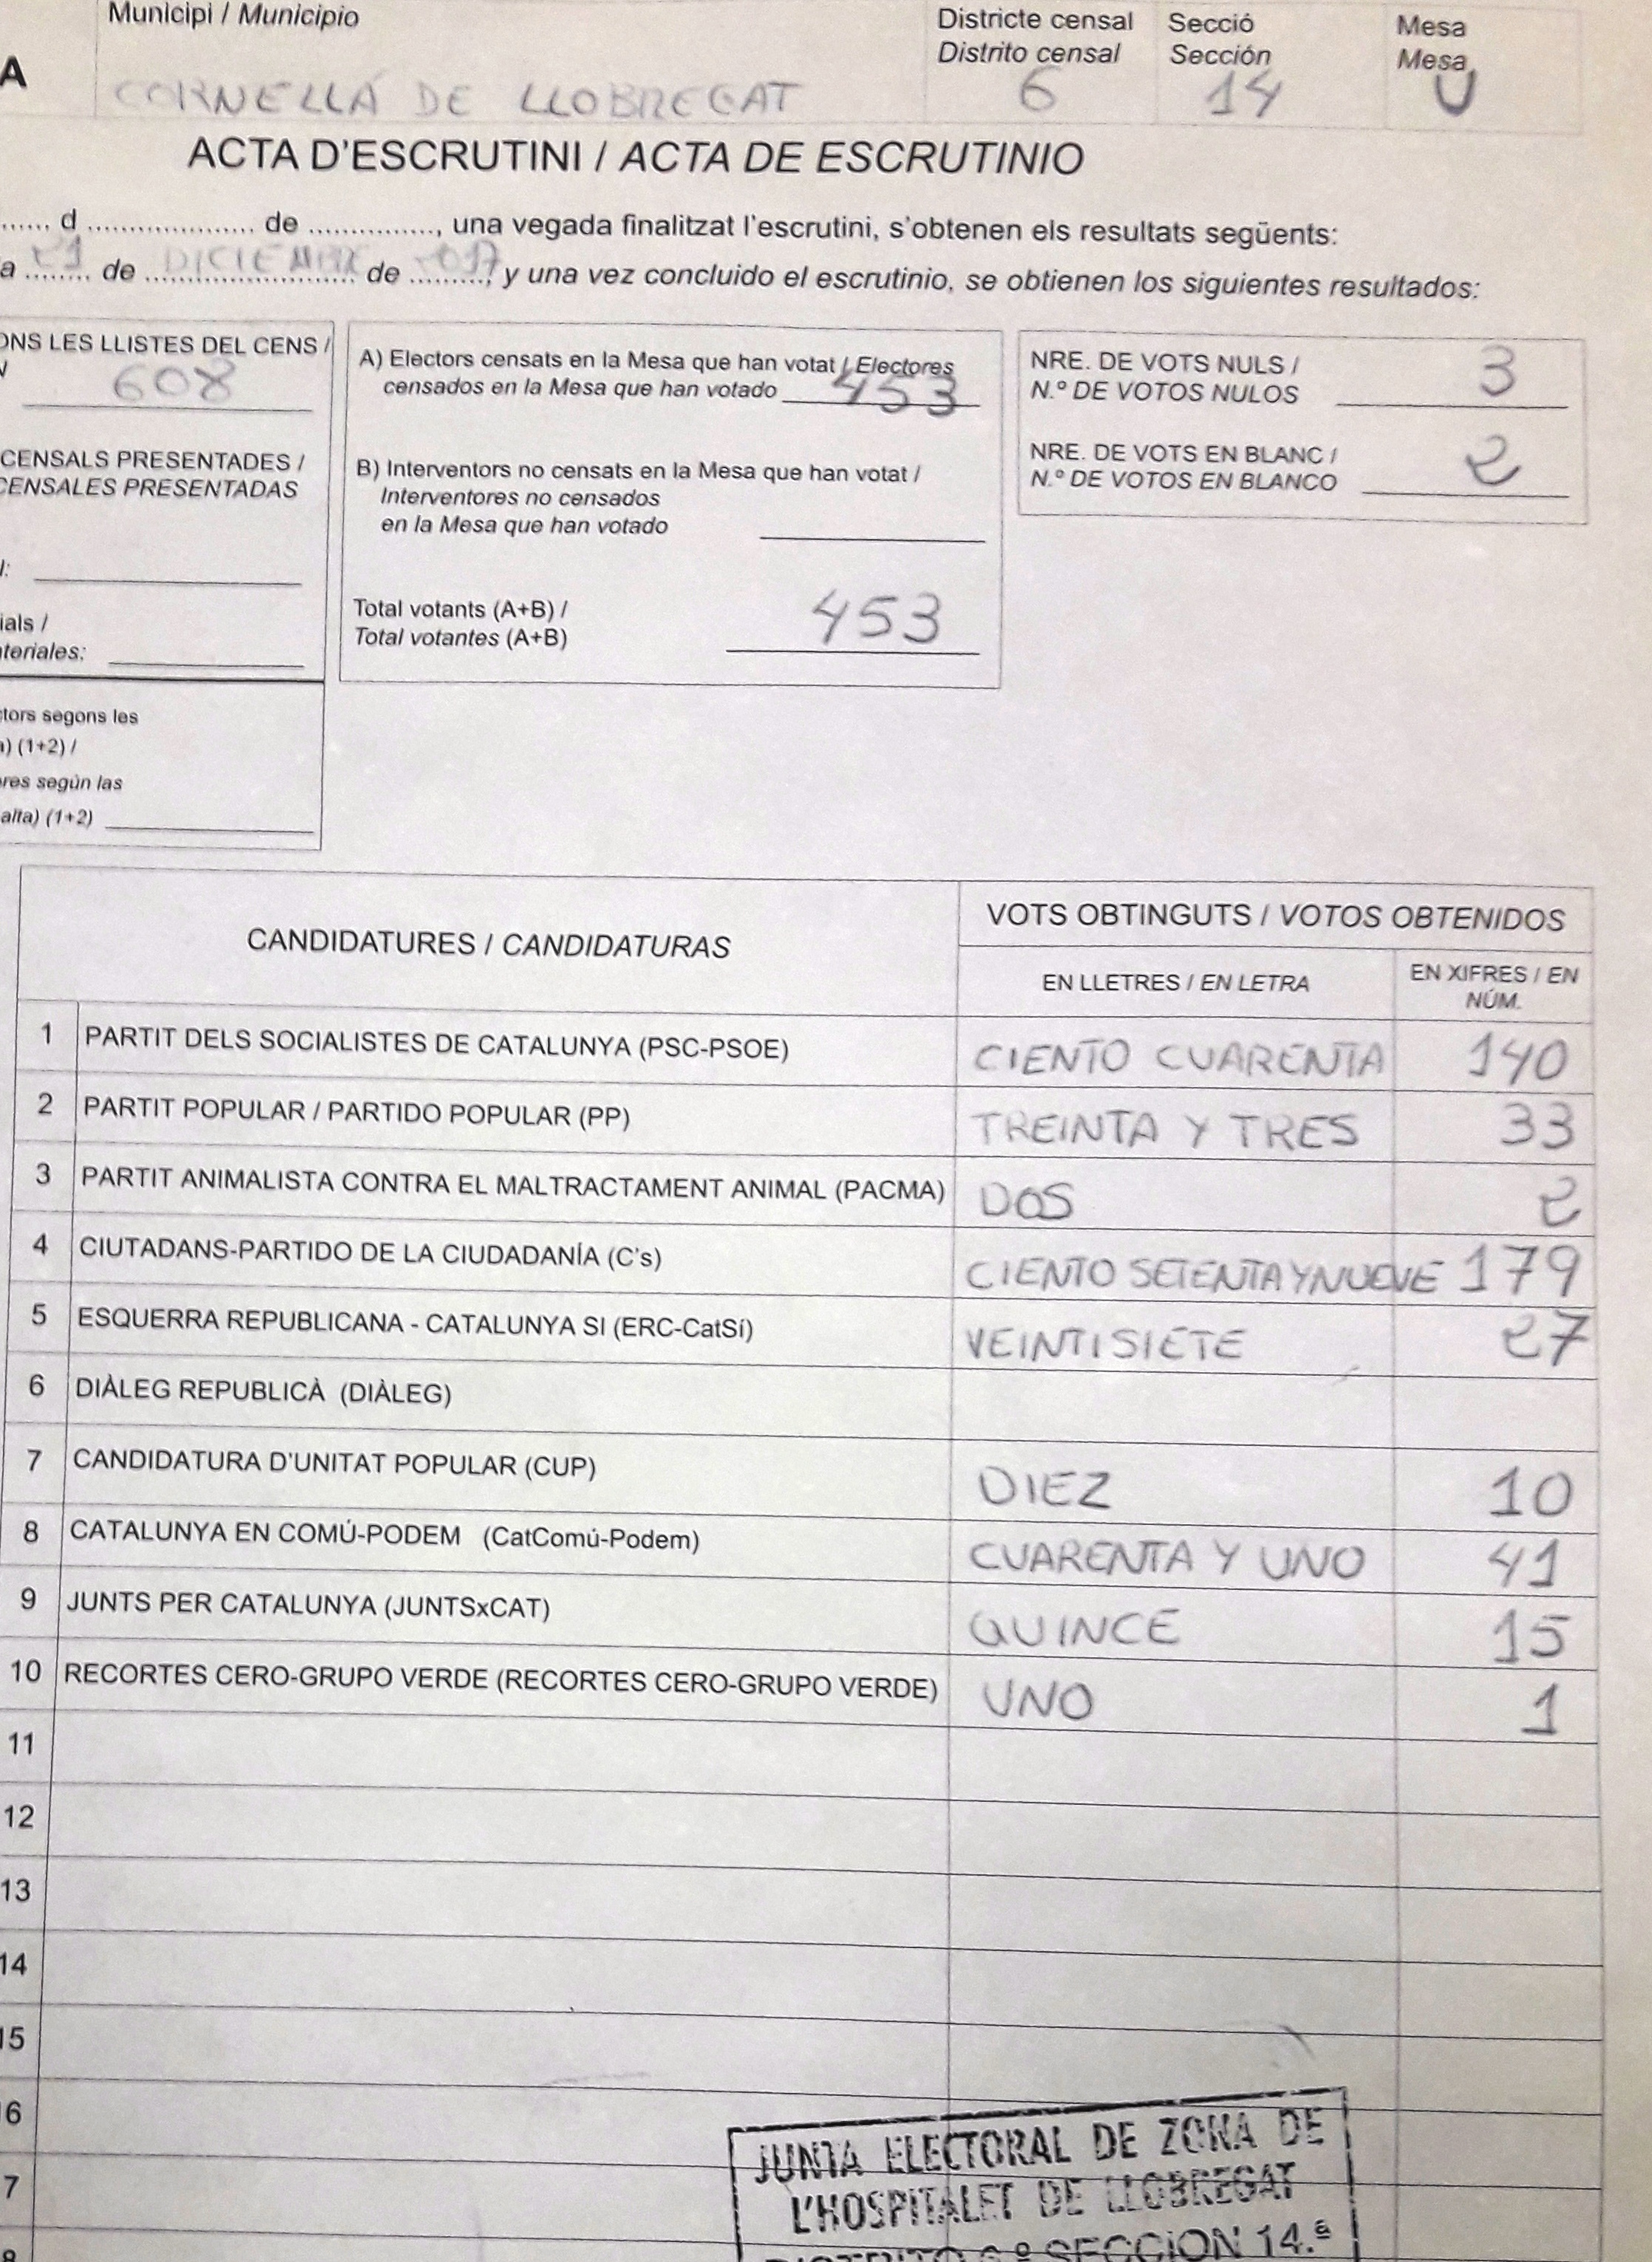 Municipi / Municipio
Districte censal Secció Mesa
Distrito censal Sección Mesa
A
CORNELLÁ DE LLOBREGAT 6 14 U
ACTA D'ESCRUTINI / ACTA DE ESCRUTINIO
...... d .................... de ..............., una vegada finalitzat l'escrutini, s'obtenen els resultats següents:
a 21 de DICIEMBRE de 2017, y una vez concluido el escrutinio, se obtienen los siguientes resultados:
ONS LES LLISTES DEL CENS /
608
CENSALS PRESENTADES /
CENSALES PRESENTADAS
l:
ials /
teriales:
tors segons les
a) (1+2) /
res según las
alta) (1+2)
A) Electors censats en la Mesa que han votat / Electores
censados en la Mesa que han votado 453
B) Interventors no censats en la Mesa que han votat /
Interventores no censados
en la Mesa que han votado
Total votants (A+B) /
Total votantes (A+B) 453
NRE. DE VOTS NULS /
N.º DE VOTOS NULOS 3
NRE. DE VOTS EN BLANC /
N.º DE VOTOS EN BLANCO 2
CANDIDATURES / CANDIDATURAS
VOTS OBTINGUTS / VOTOS OBTENIDOS
EN LLETRES / EN LETRA
EN XIFRES / EN
NÚM.
1 PARTIT DELS SOCIALISTES DE CATALUNYA (PSC-PSOE) CIENTO CUARENTA 140
2 PARTIT POPULAR / PARTIDO POPULAR (PP) TREINTA Y TRES 33
3 PARTIT ANIMALISTA CONTRA EL MALTRACTAMENT ANIMAL (PACMA) DOS 2
4 CIUTADANS-PARTIDO DE LA CIUDADANÍA (C's) CIENTO SETENTA Y NUEVE 179
5 ESQUERRA REPUBLICANA - CATALUNYA SI (ERC-CatSí) VEINTISIETE 27
6 DIÀLEG REPUBLICÀ (DIÀLEG)
7 CANDIDATURA D'UNITAT POPULAR (CUP) DIEZ 10
8 CATALUNYA EN COMÚ-PODEM (CatComú-Podem) CUARENTA Y UNO 41
9 JUNTS PER CATALUNYA (JUNTSxCAT) QUINCE 15
10 RECORTES CERO-GRUPO VERDE (RECORTES CERO-GRUPO VERDE) UNO 1
11
12
13
14
15
6
7
8
JUNTA ELECTORAL DE ZONA DE
L'HOSPITALET DE LLOBREGAT
DISTRITO 6.º SECCION 14.ª